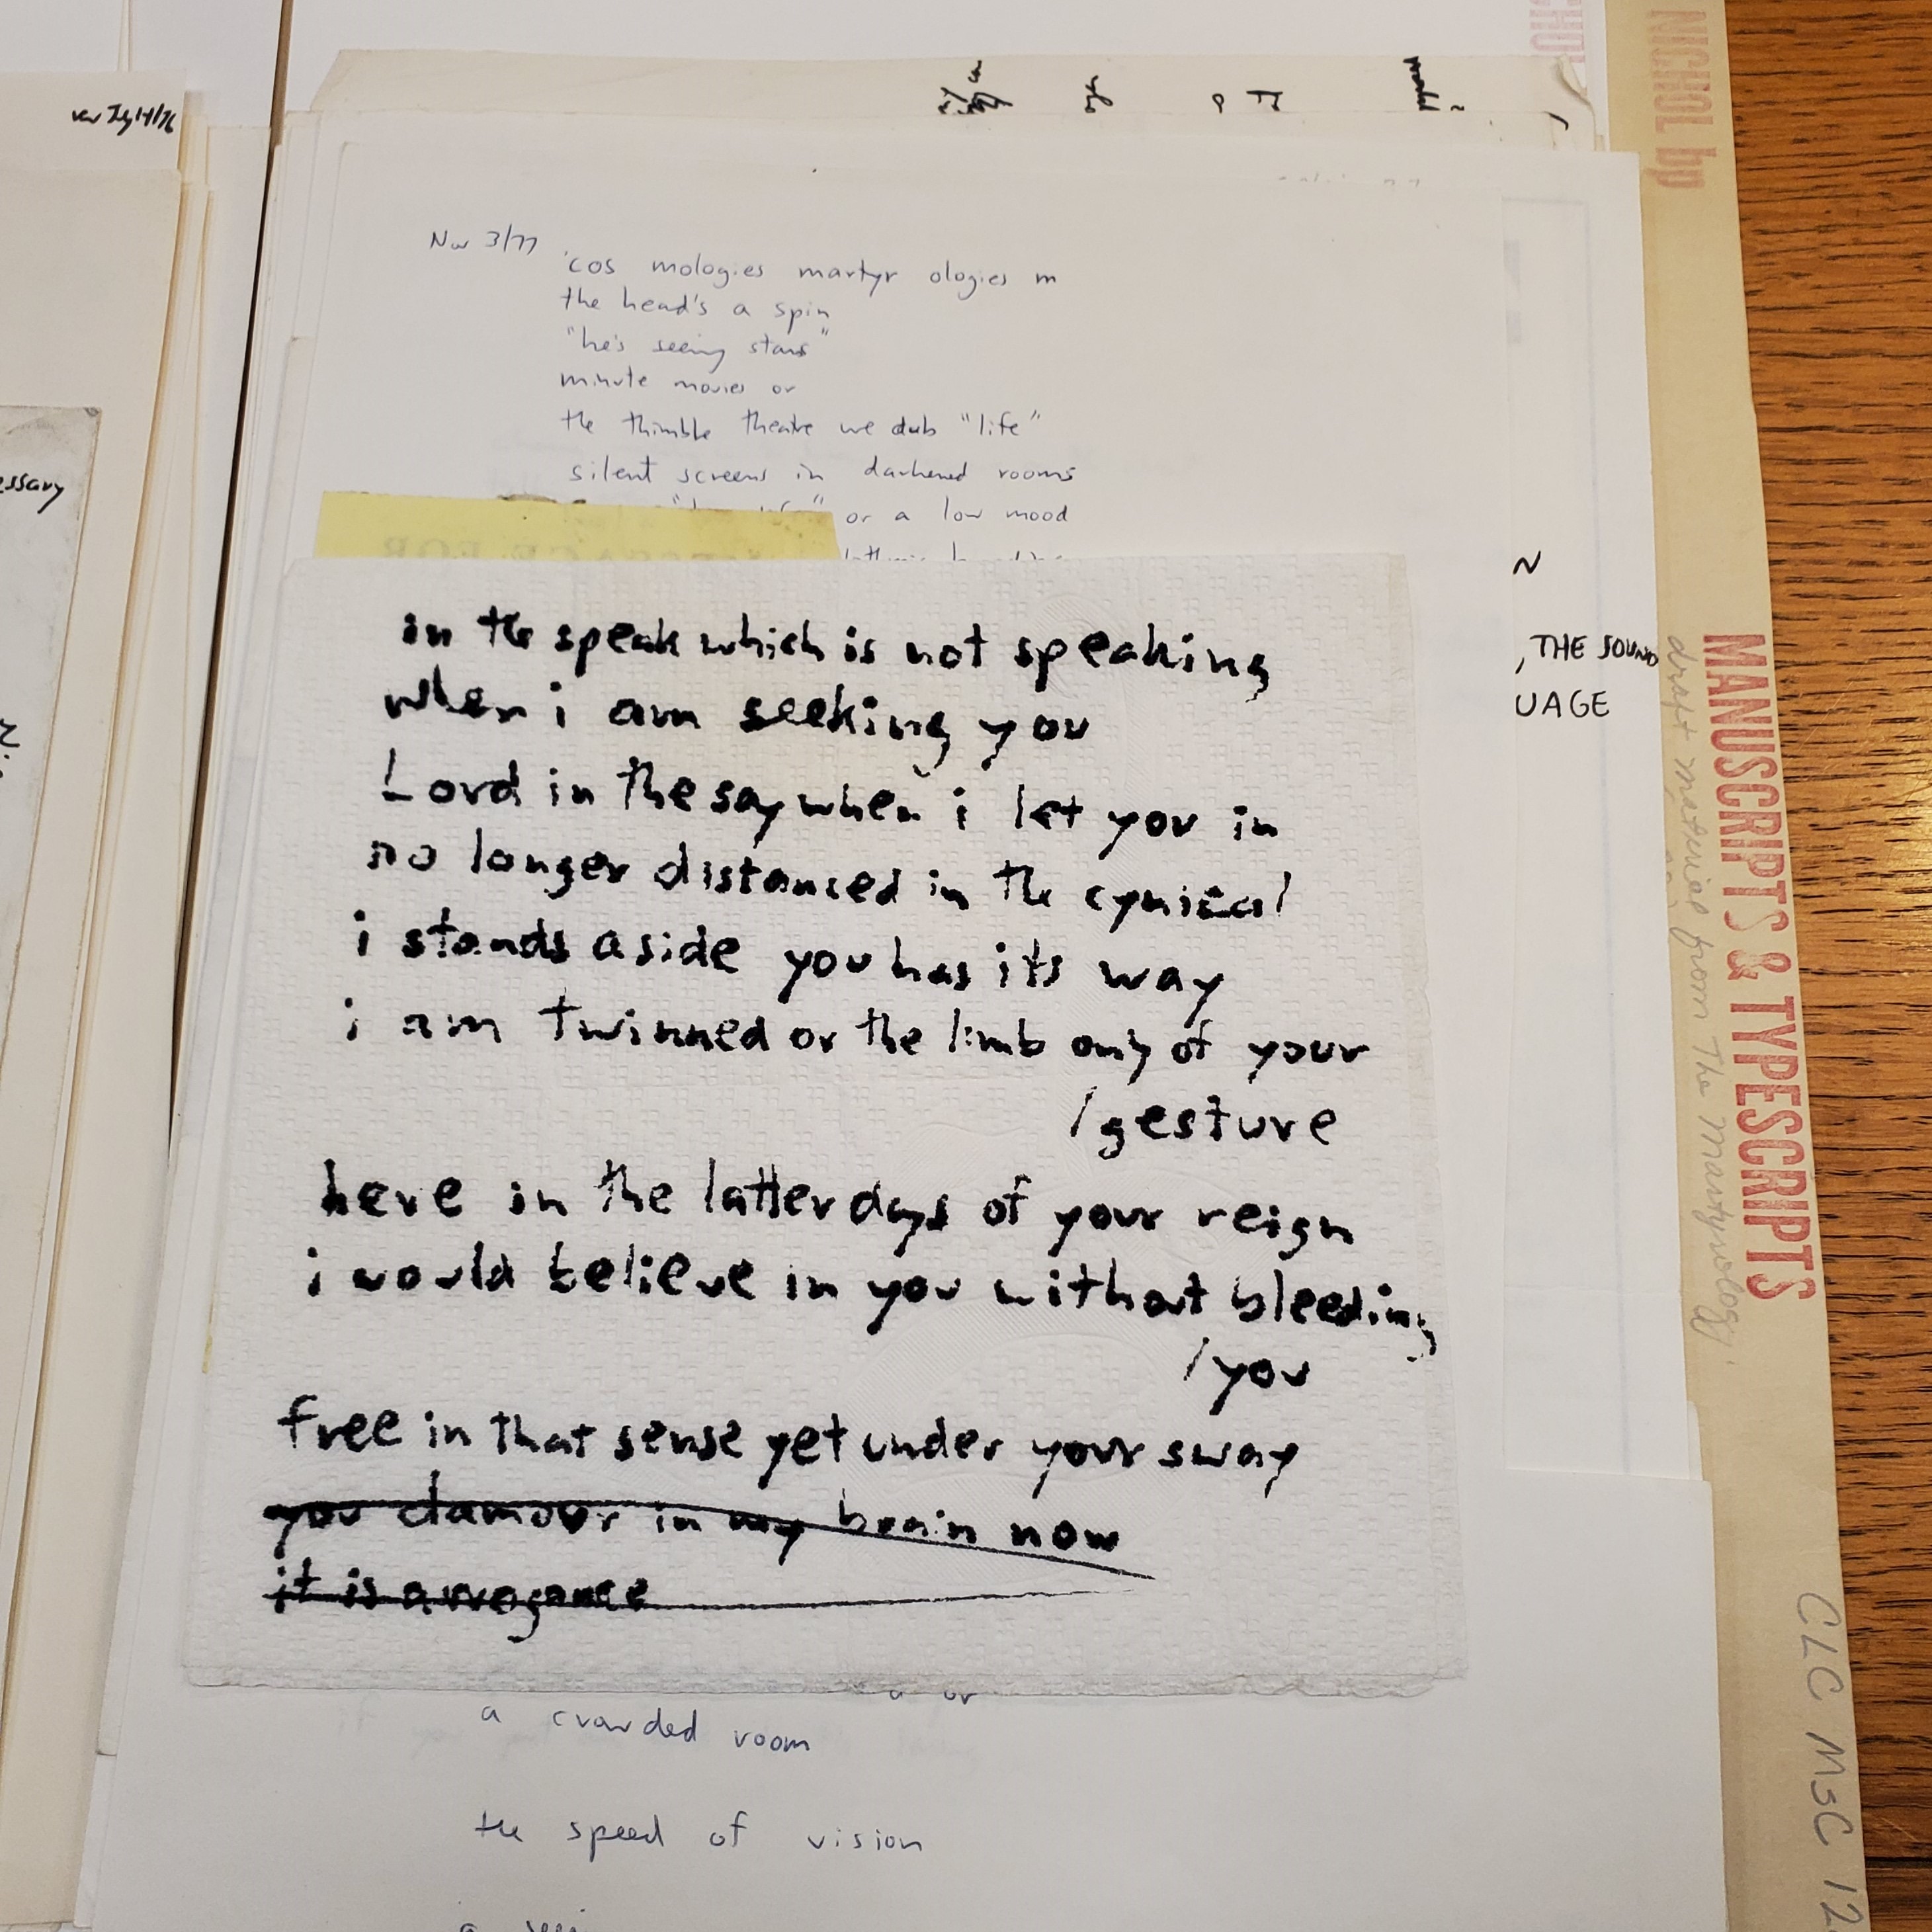 NICHOL bp
Nov 3/77
'cos mologies martyr ologies m
the head's a spin
"he's seeing stars"
minute movies or
the thimble theatre we dub "life"
silent screens in darkened rooms
or a low mood
essary
in the speak which is not speaking
when i am seeking you
Lord in the say when i let you in
no longer distanced in the cynical
i stands aside you has its way
i am twinned or the limb only of your
/gesture
here in the latter days of your reign
i would believe in you without bleeding
/you
free in that sense yet under your sway
you clamour in my brain now
it is arrogance
N
, THE SOUND
UAGE
MANUSCRIPTS & TYPESCRIPTS
draft material from The Martyrology.
CLC MSC 12
a or
a crowded room
the speed of vision